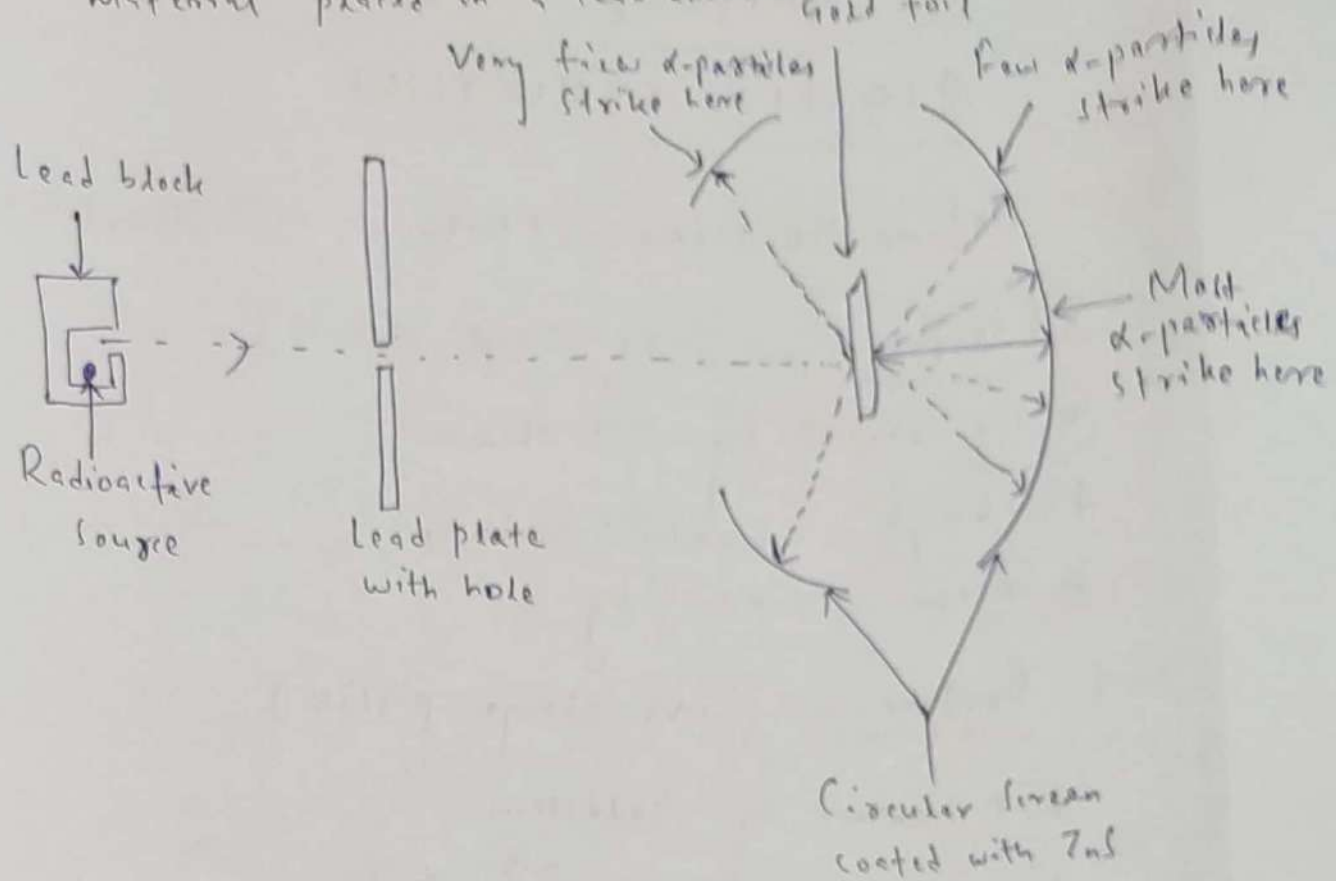 material placed in a lead Gold foil
Very few α-particles
strike here
Few α-particles
strike here
Lead block
Most
α-particles
strike here
Radioactive
Source
Lead plate
with hole
Circular Screen
coated with ZnS